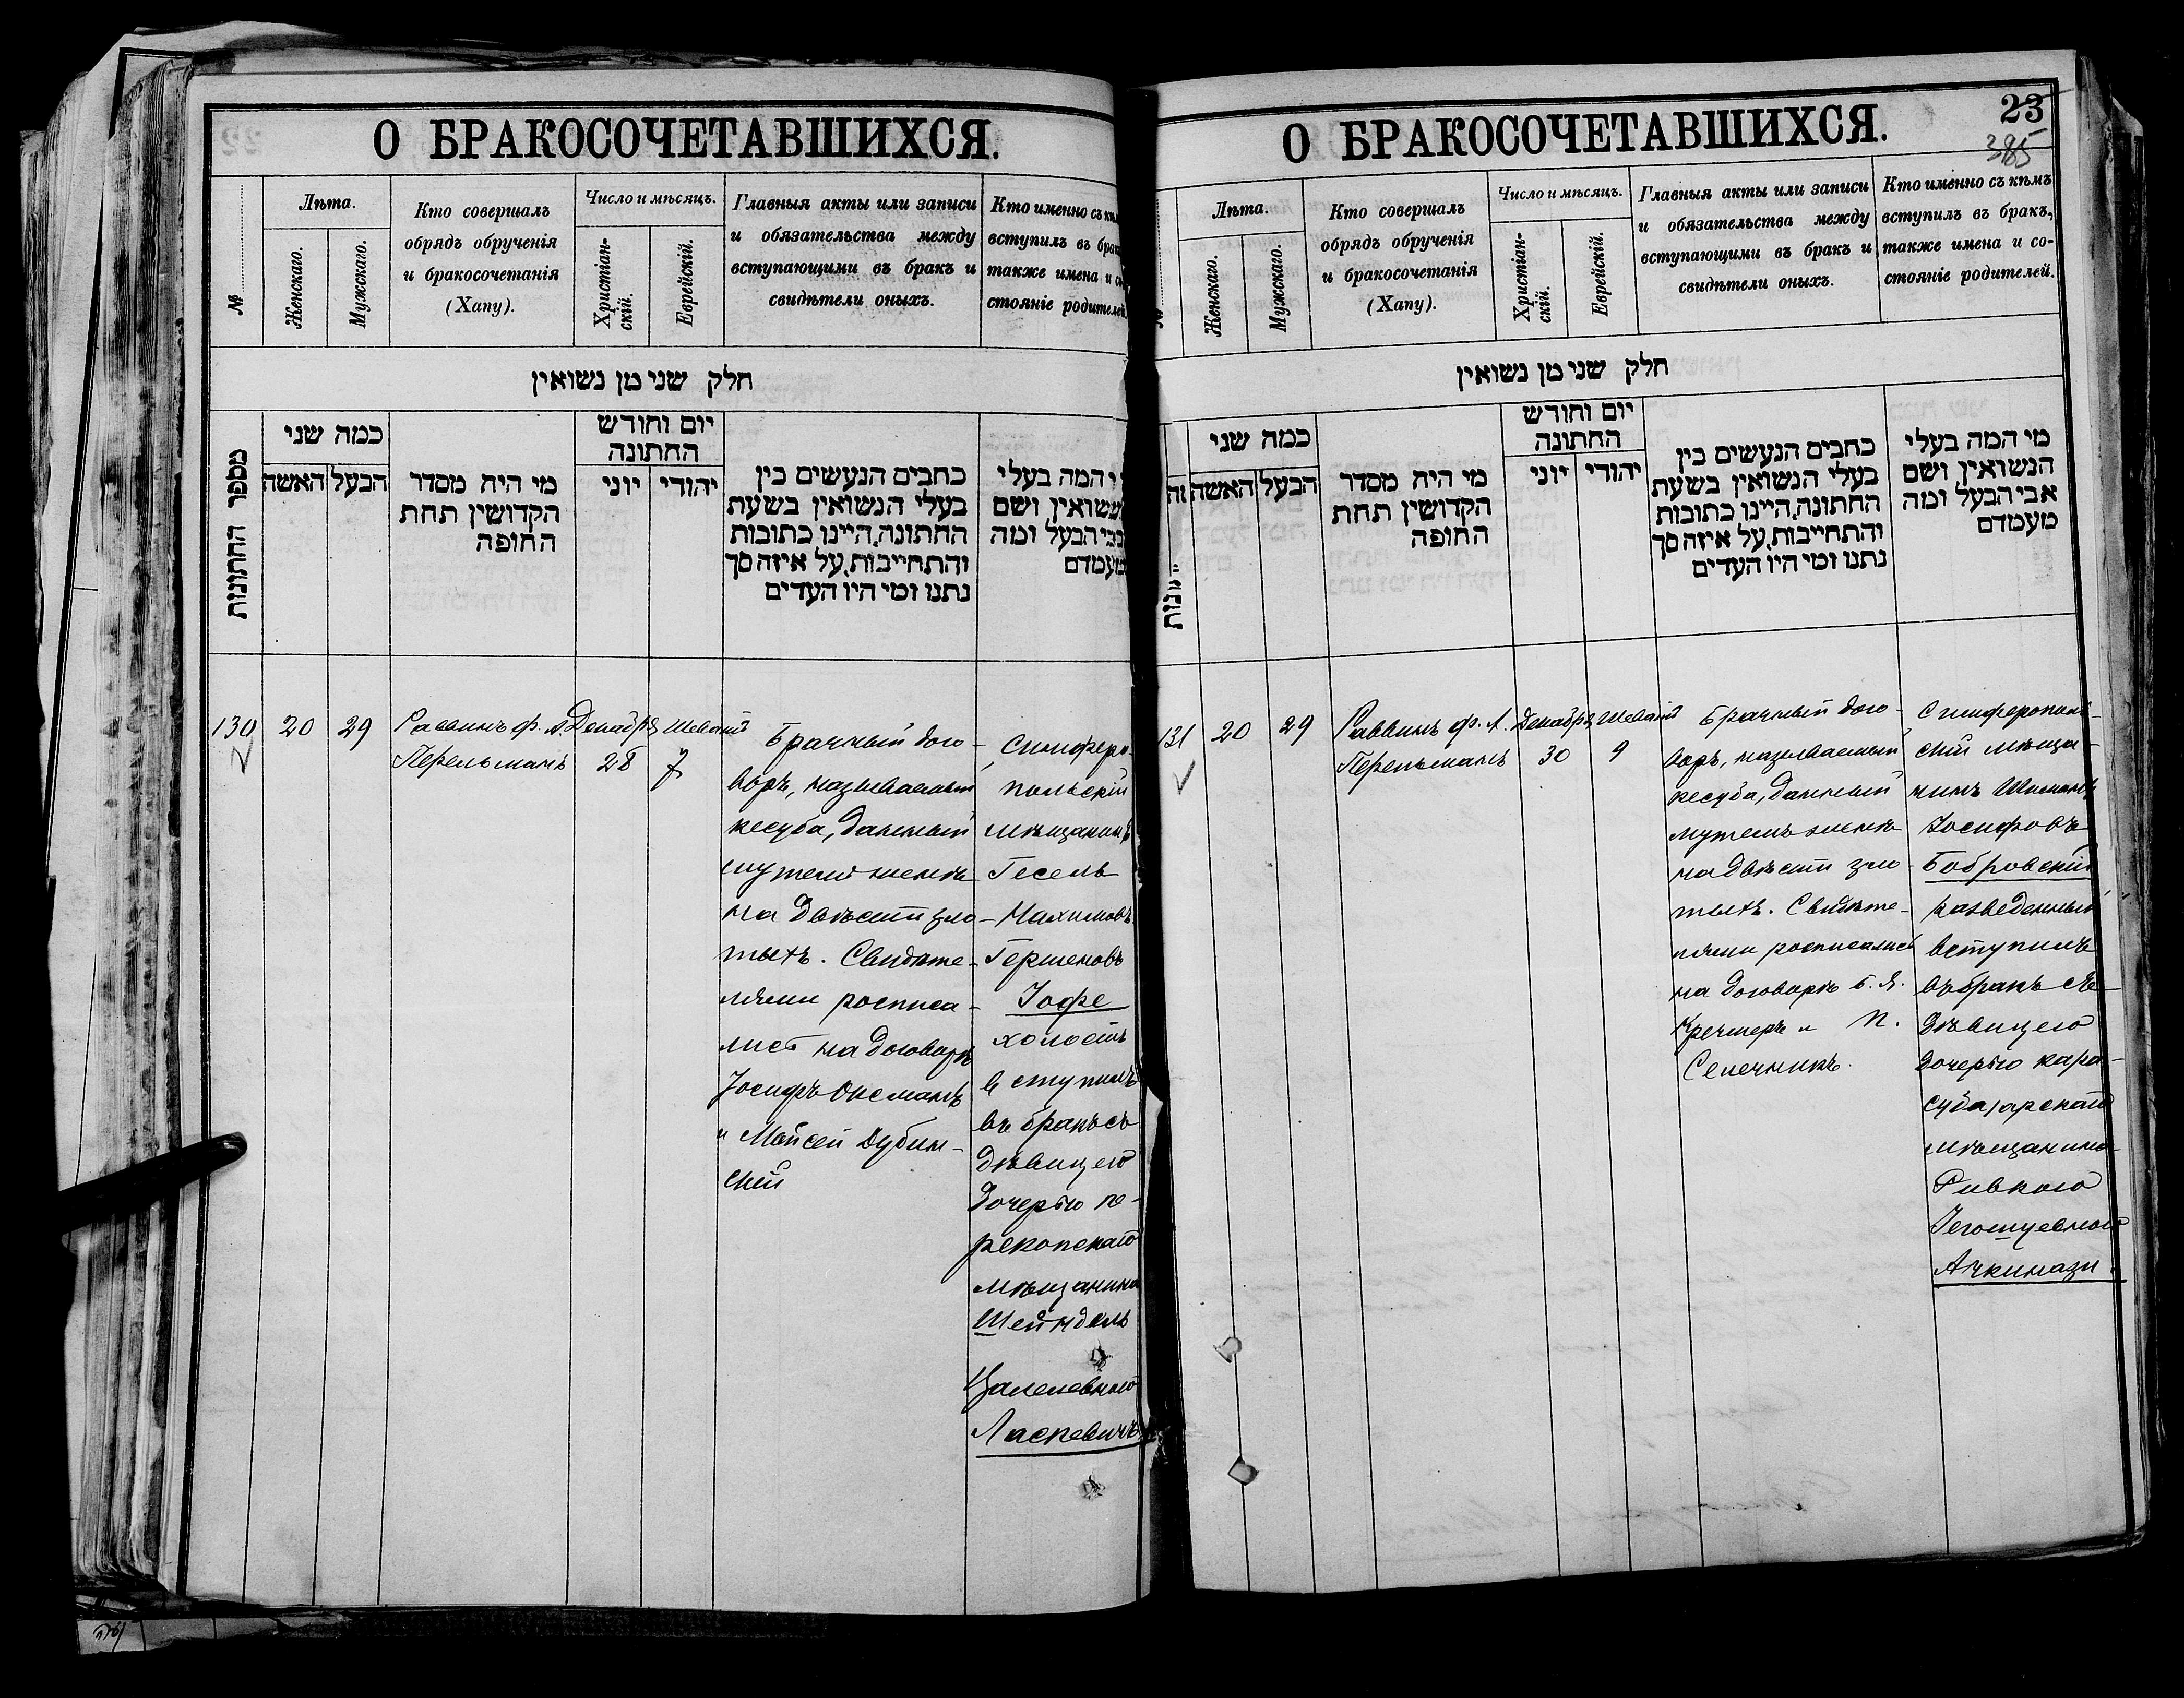 О БРАКОСОЧЕТАВШИХСЯ.
№
Лѣта.
Женскаго.
Мужскаго.
Кто совершалъ
обрядъ обрученія
и бракосочетанія
(Хапу).
Число и мѣсяцъ.
Христіан-
скій.
Еврейскій.
Главныя акты или записи
и обязательства между
вступающими въ бракъ и
свидѣтели оныхъ.
Кто именно съ
вступилъ въ
также имена и
стояніе родителей.
חלק שני מן נשואין
מספר החתונות
כמה שני
הבעל האשה
מי היה מסדר
הקדושין תחת
החופה
יום וחודש
החתונה
יהודי יוני
כתבים הנעשים בין
בעלי הנשואין בשעת
החתונה,היינו כתובות
והתחייבות,על איזה סך
נתנו ומי היו העדים
המה בעלי
ושם
הבעל ומה
מעמדם
130
20
29
Раввинъ ф. А.
Перельманъ
Декабря
28
Шеватъ
7
Брачный дого-
воръ, называемый
кесуба, данный
мужемъ женѣ
на двѣсти зло-
тыхъ. Свидѣте-
лями росписа-
лись на договорѣ
Іосифъ Оксманъ
и Мойсей Дубин-
скій
Симферо-
польскій
мѣщанинъ
Гесель
Нахимовъ
Гершеновъ
Іофе
холостъ
вступилъ
въ бракъ съ
дѣвицею
дочерью пе-
рекопскаго
мѣщанина
Шейндель
Цалелевною
Ласкевичъ
О БРАКОСОЧЕТАВШИХСЯ.
23
385
Лѣта.
Женскаго.
Мужскаго.
Кто совершалъ
обрядъ обрученія
и бракосочетанія
(Хапу).
Число и мѣсяцъ.
Христіан-
скій.
Еврейскій.
Главныя акты или записи
и обязательства между
вступающими въ бракъ и
свидѣтели оныхъ.
Кто именно съ кѣмъ
вступилъ въ бракъ,
также имена и со-
стояніе родителей.
חלק שני מן נשואין
כמה שני
הבעל האשה
מי היה מסדר
הקדושין תחת
החופה
יום וחודש
החתונה
יהודי יוני
כתבים הנעשים בין
בעלי הנשואין בשעת
החתונה,היינו כתובות
והתחייבות,על איזה סך
נתנו ומי היו העדים
מי המה בעלי
הנשואין ושם
אבי הבעל ומה
מעמדם
131
20
29
Раввинъ ф. А.
Перельманъ
Декабря
30
Шеватъ
9
Брачный дого-
воръ, называемый
кесуба, данный
мужемъ женѣ
на двѣсти зло-
тыхъ. Свидѣте-
лями росписались
на договорѣ Б. Я.
Кречмеръ и П.
Сепечникъ.
Симферополь-
скій мѣща-
нинъ Шимонъ
Іосифовъ
Бобровскій
разведенный
вступилъ
въ бракъ съ
дѣвицею
дочерью кара-
субазарскаго
мѣщанина
Ривкою
Іегошуевною
Ачкинази.